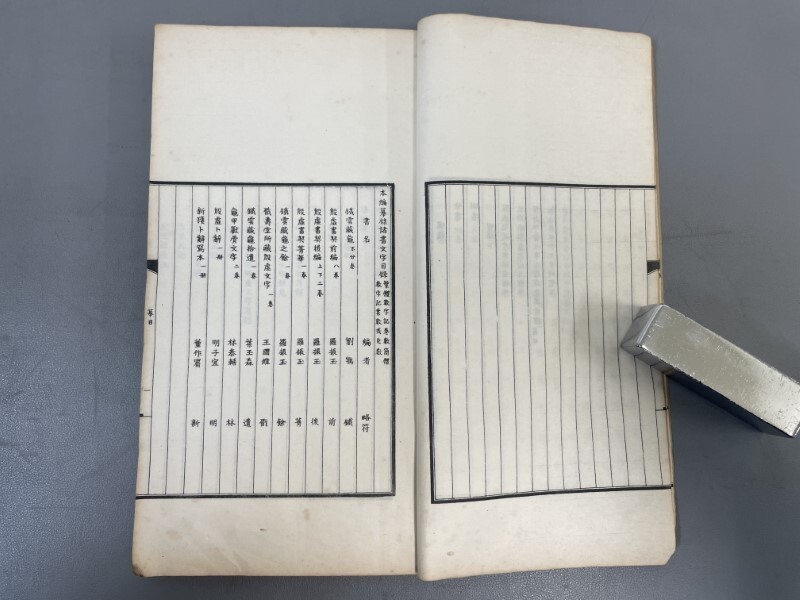 本編摹錄諸書文字目錄 繁體數字記卷數簡體數字記葉數或片數
書名 編者 略符
鐵雲藏龜 不分卷 劉鶚 鐵
殷虛書契前編 八卷 羅振玉 前
殷虛書契後編 上下二卷 羅振玉 後
殷虛書契菁華 一卷 羅振玉 菁
鐵雲藏龜之餘 一卷 羅振玉 餘
戩壽堂所藏殷虛文字 一卷 王國維 戩
鐵雲藏龜拾遺 一卷 葉玉森 遺
龜甲獸骨文字 二卷 林泰輔 林
殷虛卜辭 一冊 明子宜 明
新獲卜辭寫本 一冊 董作賓 新
一